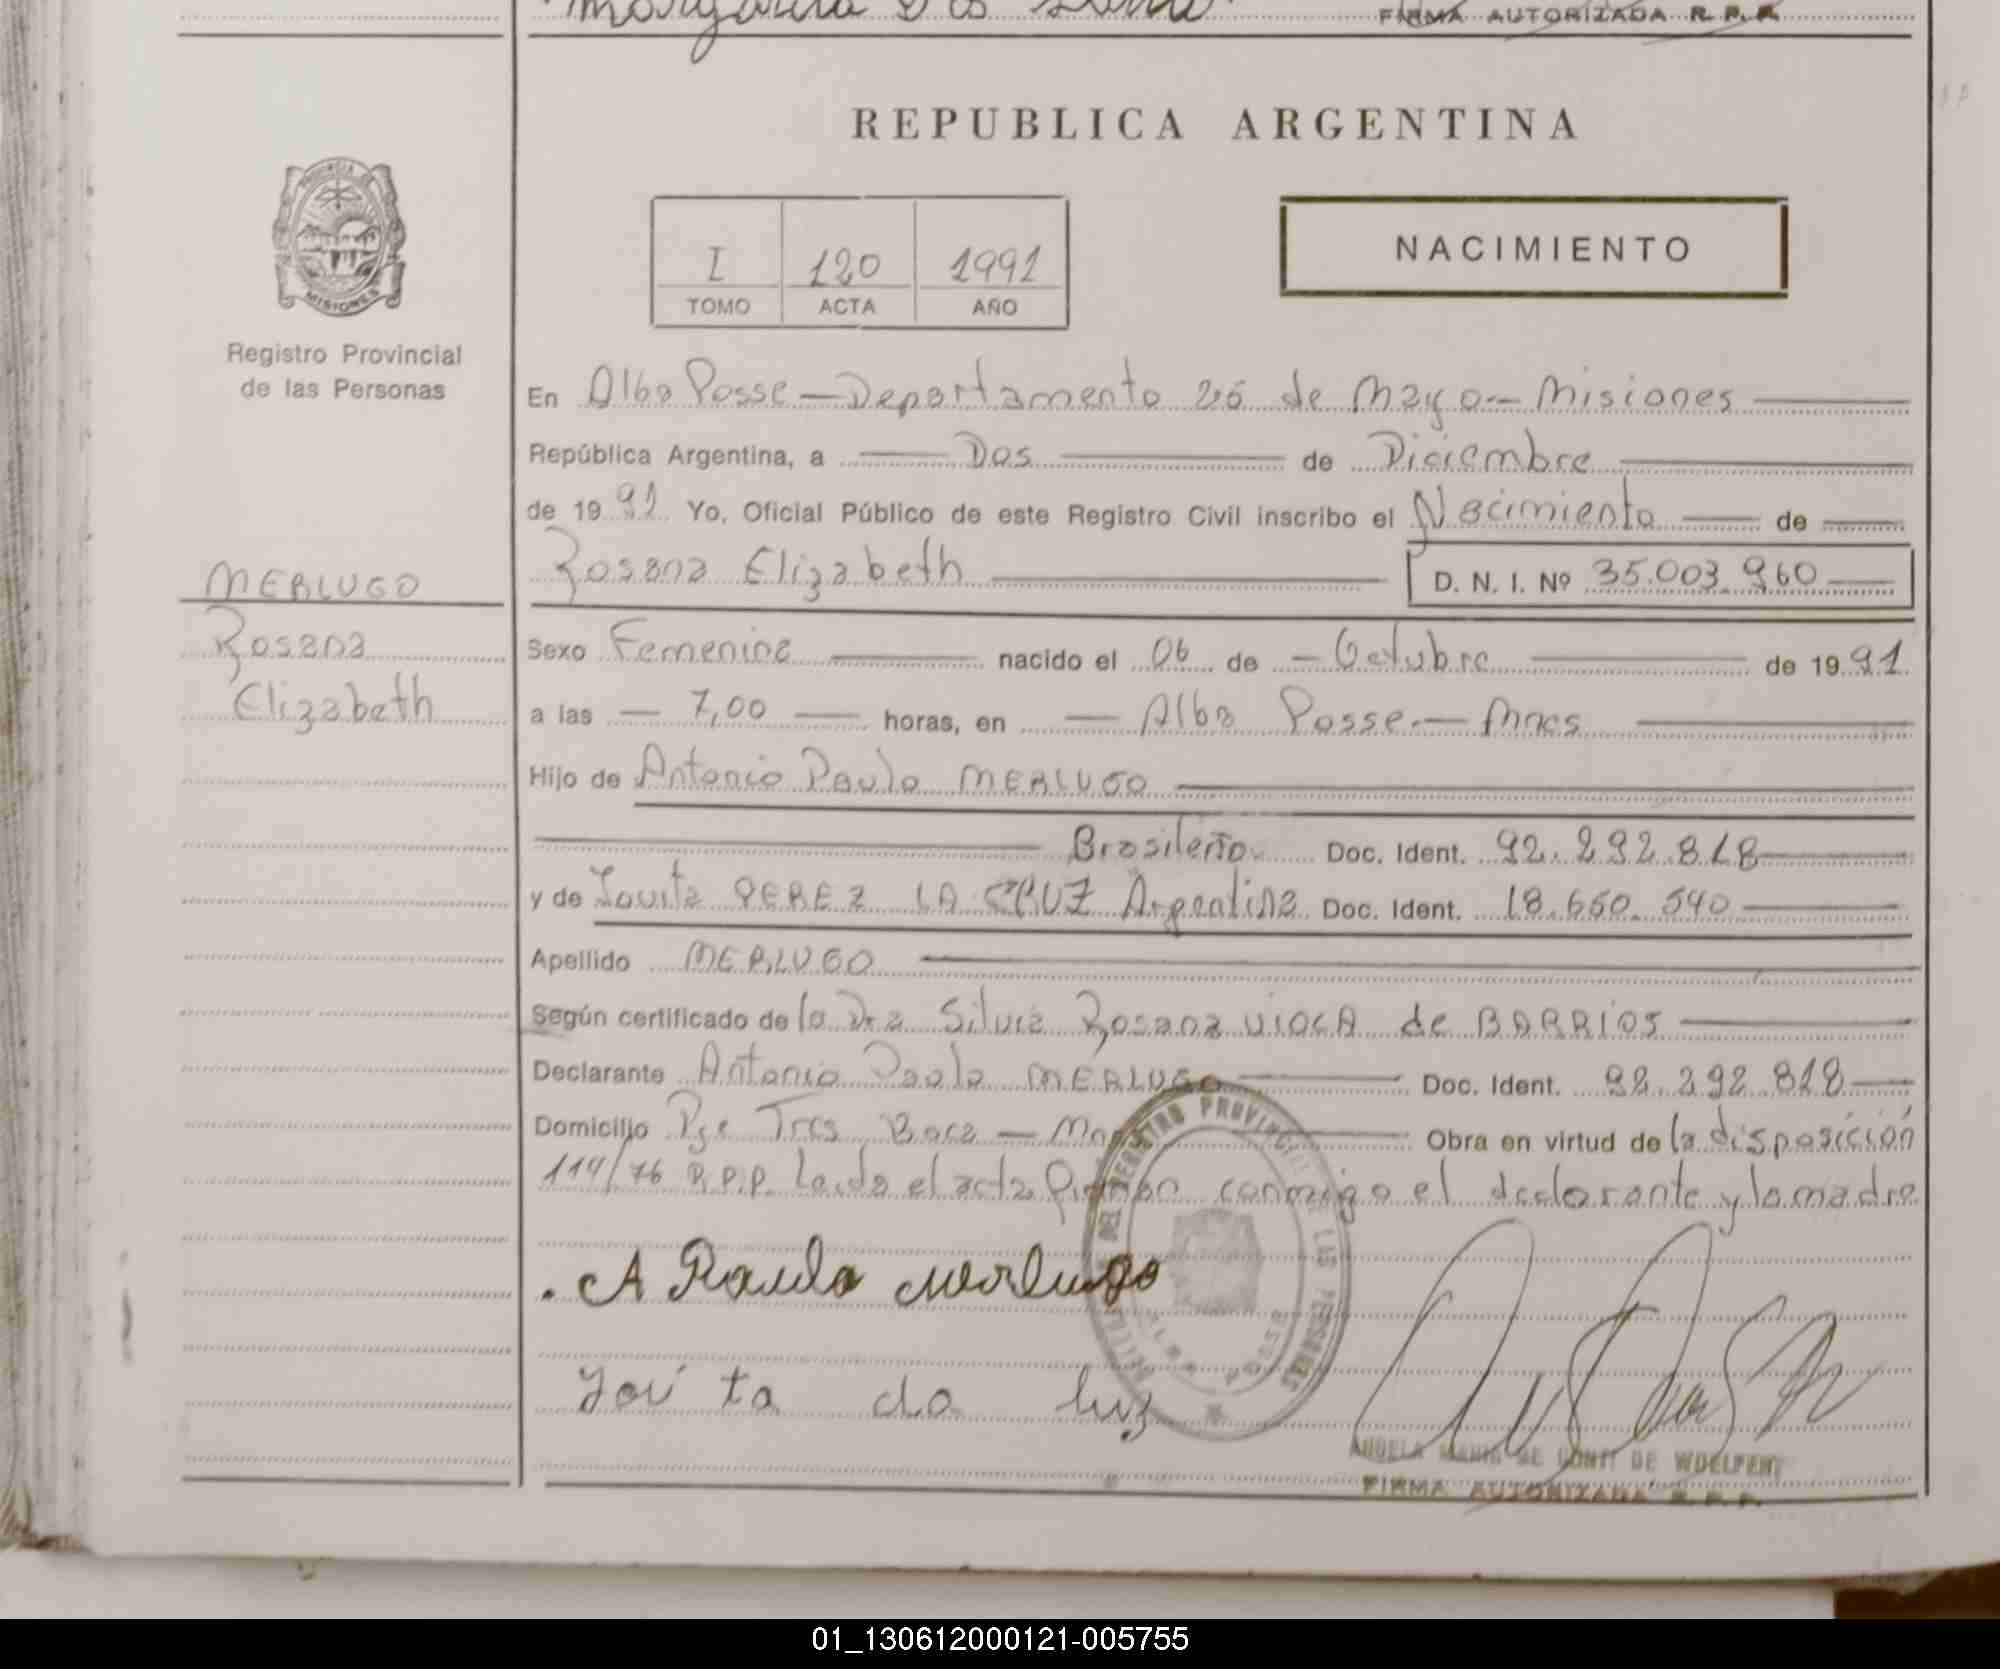 Margarita Dos
FIRMA AUTORIZADA R. P. P.
REPUBLICA ARGENTINA
PROVINCIA DE MISIONES
I 120 1991
TOMO ACTA AÑO
NACIMIENTO
Registro Provincial
de las Personas
En Alba Posse — Departamento 25 de Mayo — Misiones
República Argentina, a Dos de Diciembre
de 1991 Yo, Oficial Público de este Registro Civil inscribo el Nacimiento de
Rosana Elizabeth D. N. I. Nº 35.003.960
MERLUGO
Rosana
Elizabeth
Sexo Femenina nacido el 06 de Octubre de 1991
a las 7,00 horas, en Alba Posse — Mnes
Hijo de Antonio Paulo MERLUGO
Brasileño Doc. Ident. 92.292.818
y de Jovita PEREZ LA CRUZ Argentina Doc. Ident. 18.660.540
Apellido MERLUGO
Según certificado de la Dra Silvia Rosana VIOCA de BARRIOS
Declarante Antonio Paulo MERLUGO Doc. Ident. 92.292.818
Domicilio Pje Tres Boca — Obra en virtud de la disposición
114/76 R.P.P. Leida el acta firman conmigo el declarante y la madre
A Paulo Merlugo
Jovita da luz
DEL REGISTRO PROVINCIAL DE LAS PERSONAS
ALBA POSSE
ANGELA MARIA DE CONTI DE WOELFERT
FIRMA AUTORIZADA R. P. P.
01_130612000121-005755